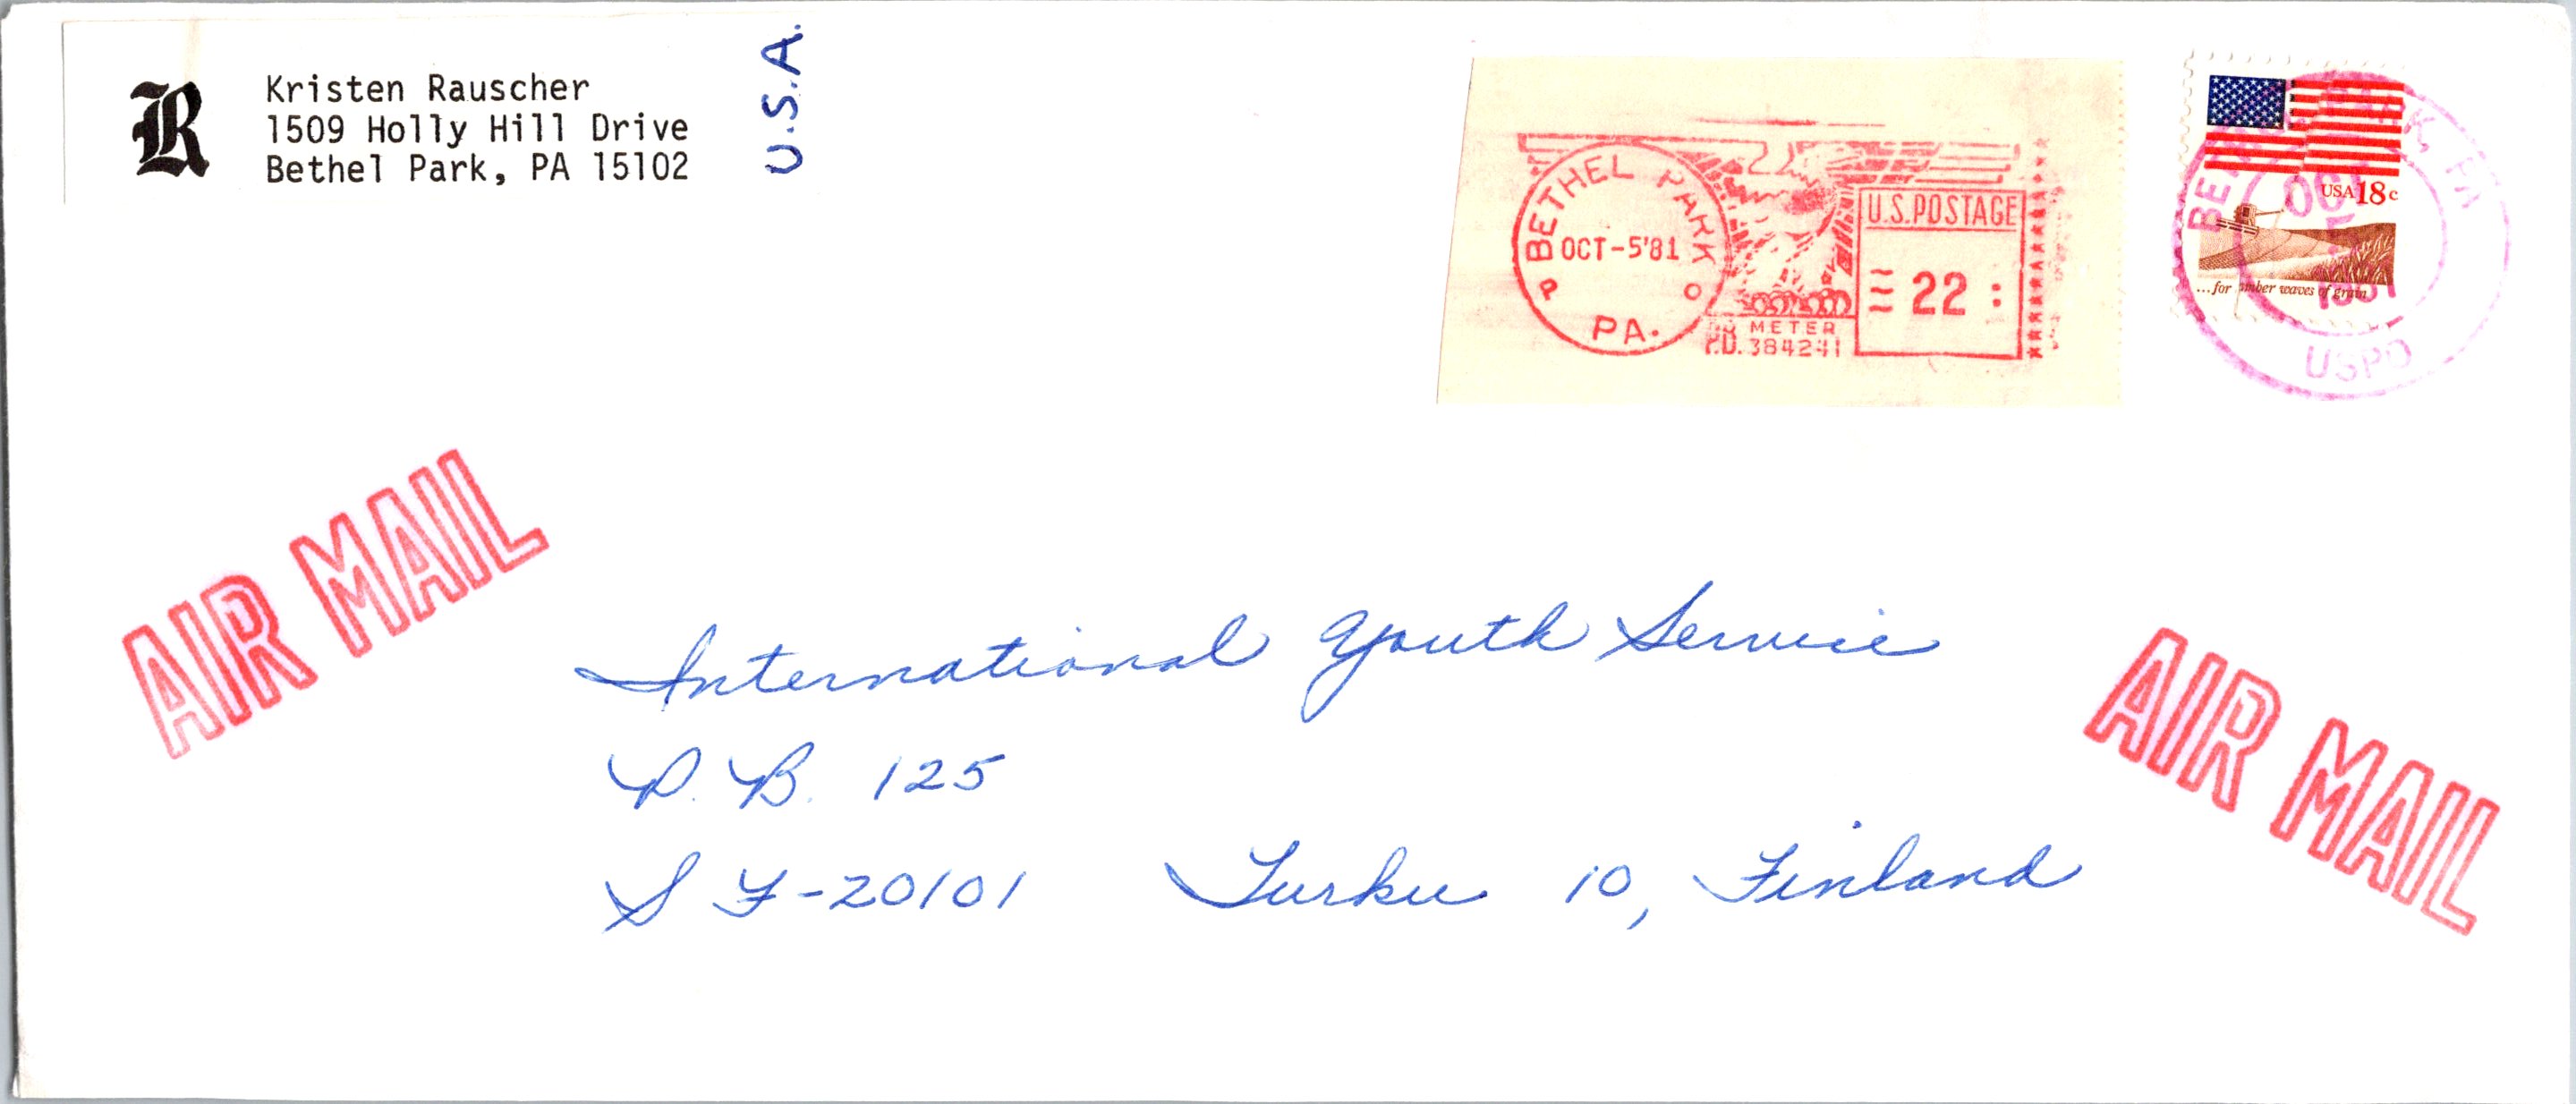 R
Kristen Rauscher
1509 Holly Hill Drive
Bethel Park, PA 15102
U.S.A.
BETHEL PARK
P O
OCT-5'81
PA.
U.S. POSTAGE
22
METER
384241
USA 18c
...for amber waves of grain
BETHEL PARK, PA
OCT
5
1981
USPO
AIR MAIL
AIR MAIL
International Youth Service
P. B. 125
S F-20101 Turku 10, Finland